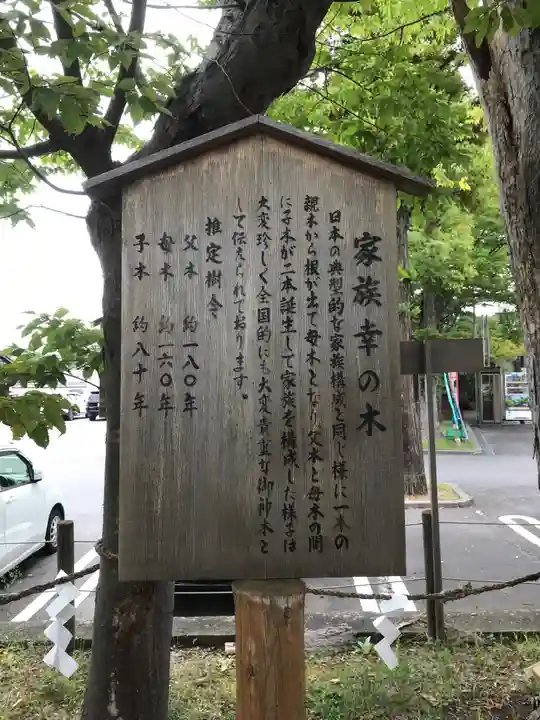 家族幸の木
日本の典型的な家族構成と同じ様に一本の
認木から根が出て母木となり父木と母木の間
に子木が二本誕生して家族を構成した様子は
大変珍しく全国的にも大変貴重な御神木と
して伝えられております。
推定樹令
父木　約一八〇年
母木　約一六〇年
子木　約八十年